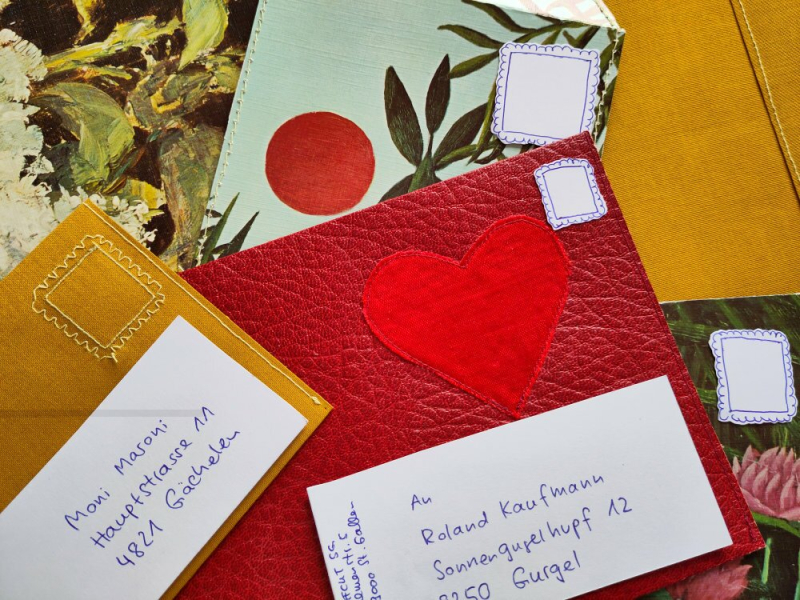 Moni Masoni
Hauptstrasse 11
4821 Gächelen
An
Roland Kaufmann
Sonnenguselhupf 12
Gurgel
9000 St.